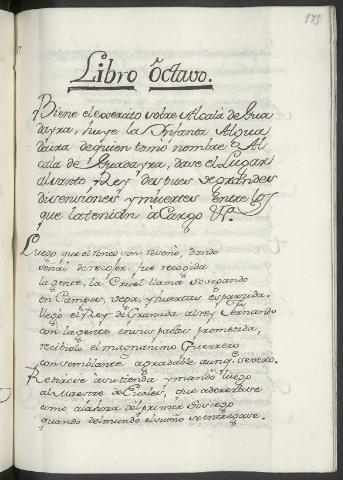 173
Libro Octavo.
Biene el exercito sobre Alcalá de Gua
dayra, huye la Infanta Algua
daira de quien tomó nombre Al
cala de Guadayra, dase el Lugar
al santo Rey despues de grandes
disensiones y muertes entre los
que la tenian a Cargo V.
Luego que el ronco son, dando
señal de recoger, fue recogida
la gente, la Cruel llama sosegando
en Campos, vega, y huertas esparzida.
llegó el Rey de Granada al rey Fernando
con la gente en sus pactos prometida,
recibiolo el magnanimo Guerrero
con semblante agradable aunq. severo.
Retirose a su tienda y mandó luego
al Maestre de Vcles, que aderezase
como a la hora del primer sosiego
quando del mundo el sueño se entregase.